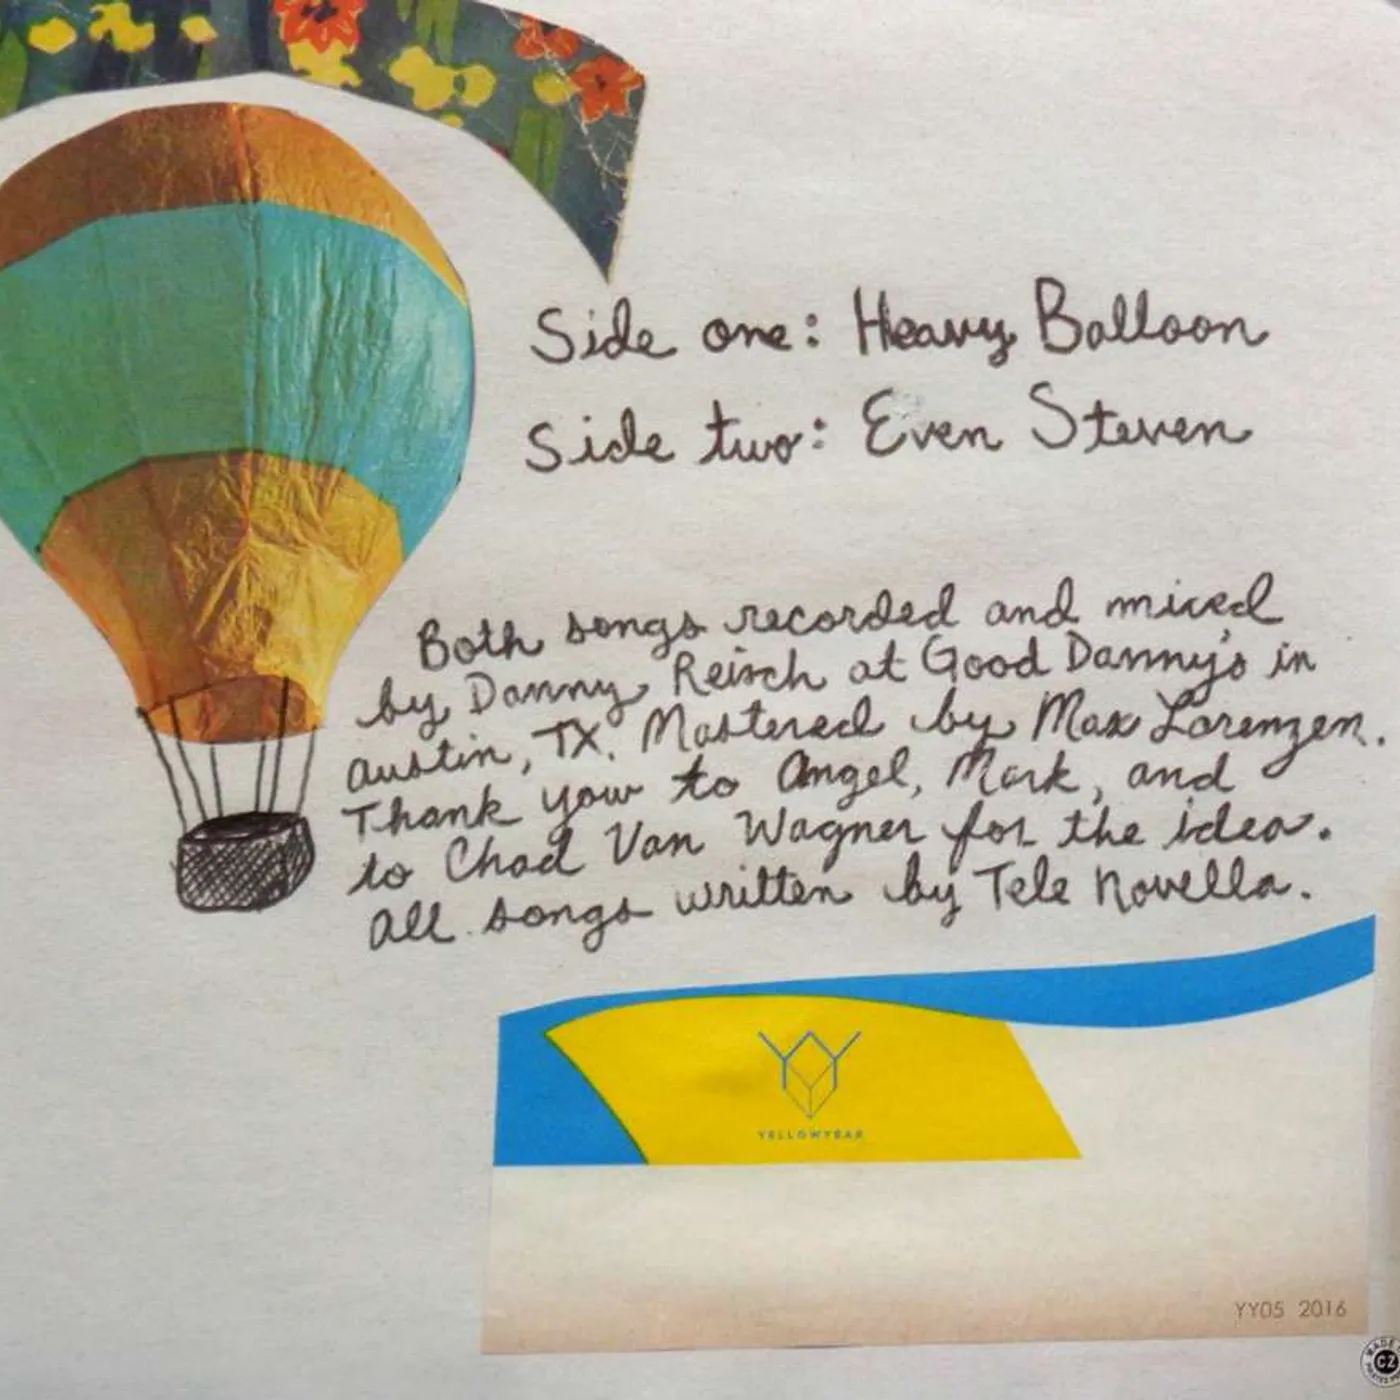 Side one: Heavy Balloon
Side two: Even Steven
Both songs recorded and mixed
by Danny Reisch at Good Danny's in
Austin, TX. Mastered by Max Lorenzen.
Thank you to Angel, Mark, and
to Chad Van Wagner for the idea.
All songs written by Tele Novella.
YELLOWYEAR
YY05 2016
MADE
CZ